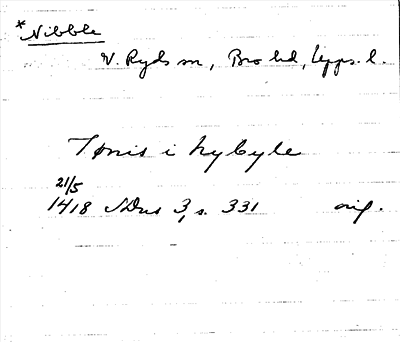 *Nibble
V. Ryds sn, Bro hd, Upps. l.
Tønis i Nybyle
21/5
1418 SDns 3, s. 331 orig.